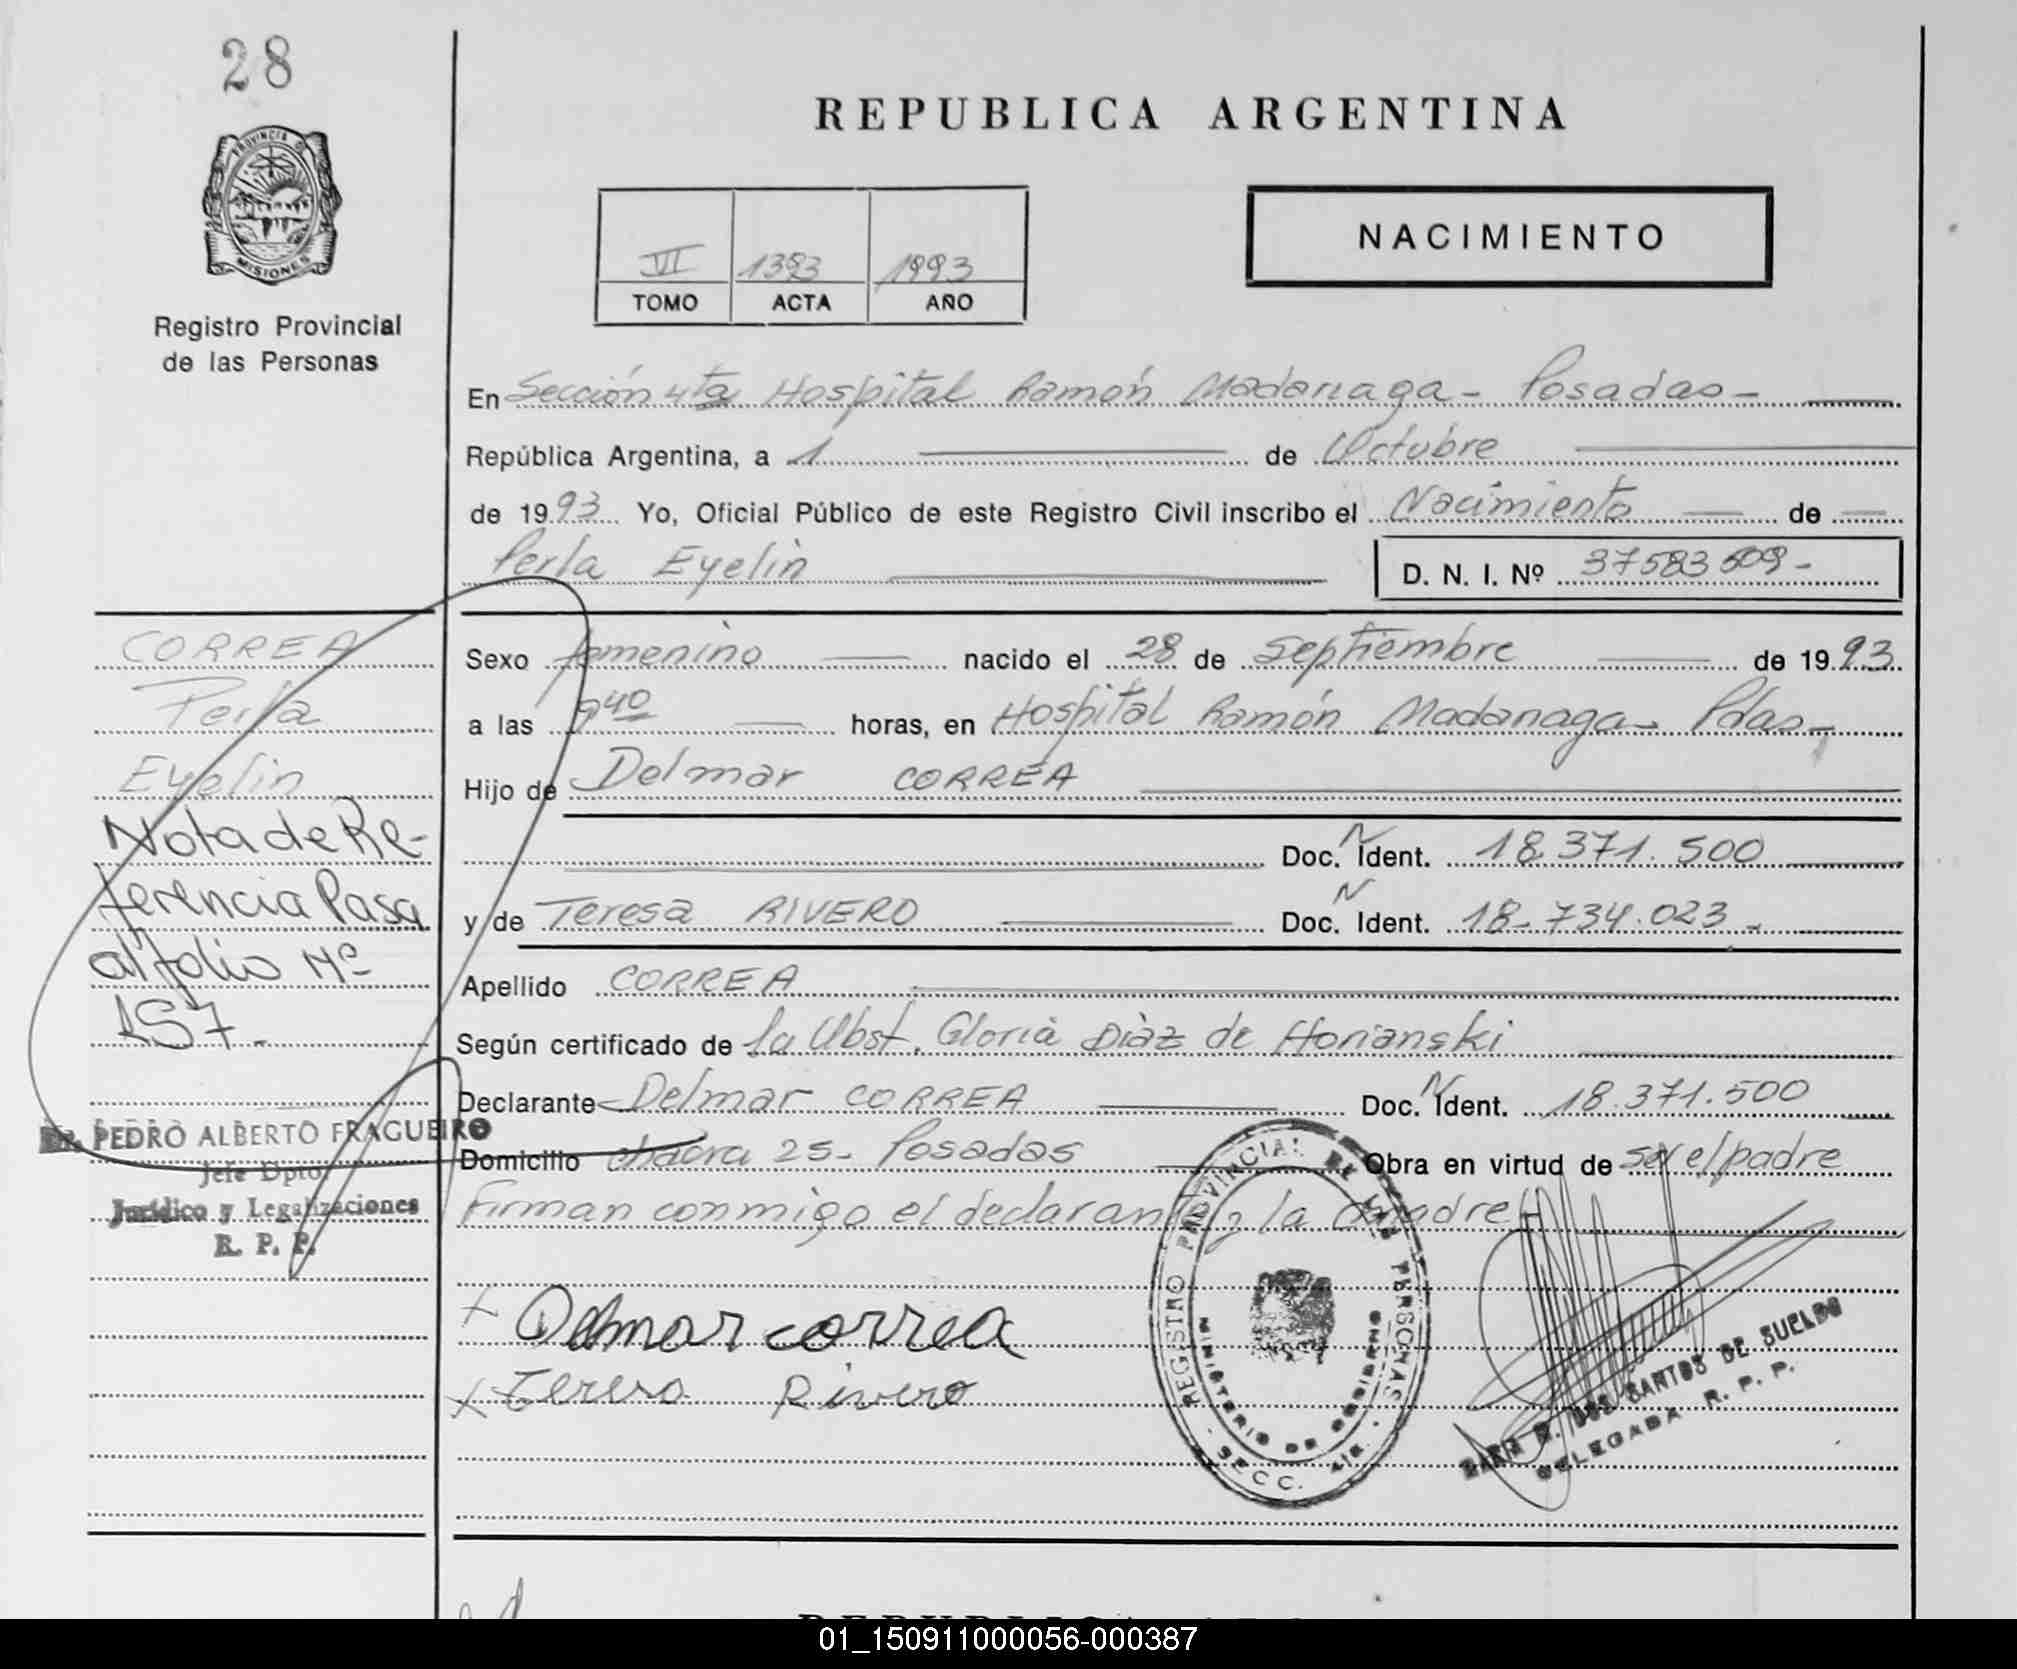 28
REPUBLICA ARGENTINA
PROVINCIA D MISIONES
Registro Provincial
de las Personas
VI 1393 1993
TOMO ACTA AÑO
NACIMIENTO
En Sección 4ta Hospital Ramón Madariaga - Posadas -
República Argentina, a 1 de Octubre
de 1993 Yo, Oficial Público de este Registro Civil inscribo el Nacimiento de
Perla Eyelin
D. N. I. Nº 37583609-
CORREA
Perla
Eyelin
Nota de Re-
ferencia Pasa
al folio Nº
157.
DR. PEDRO ALBERTO FRAGUEIRO
Jefe Dpto
Jurídico y Legalizaciones
R. P. P.
Sexo femenino nacido el 28 de Septiembre de 1993
a las 9 40 horas, en Hospital Ramón Madariaga - Pdas -
Hijo de Delmar CORREA
Doc. N Ident. 18.371.500
y de Teresa RIVERO Doc. N Ident. 18-734.023-
Apellido CORREA
Según certificado de la Obst. Gloria Diaz de
Declarante Delmar CORREA Doc. N Ident. 18.371.500
Domicilio chacra 25- Posadas Obra en virtud de ser el padre
Firman conmigo el declarante y la madre-
x Delmar correa
x Teresa Rivero
REGISTRO PROVINCIAL DE LAS PERSONAS
MINISTERIO DE GOBIERNO
SECC. 4TA.
DOS SANTOS DE SUELDO
DELEGADA R. P. P.
01_150911000056-000387